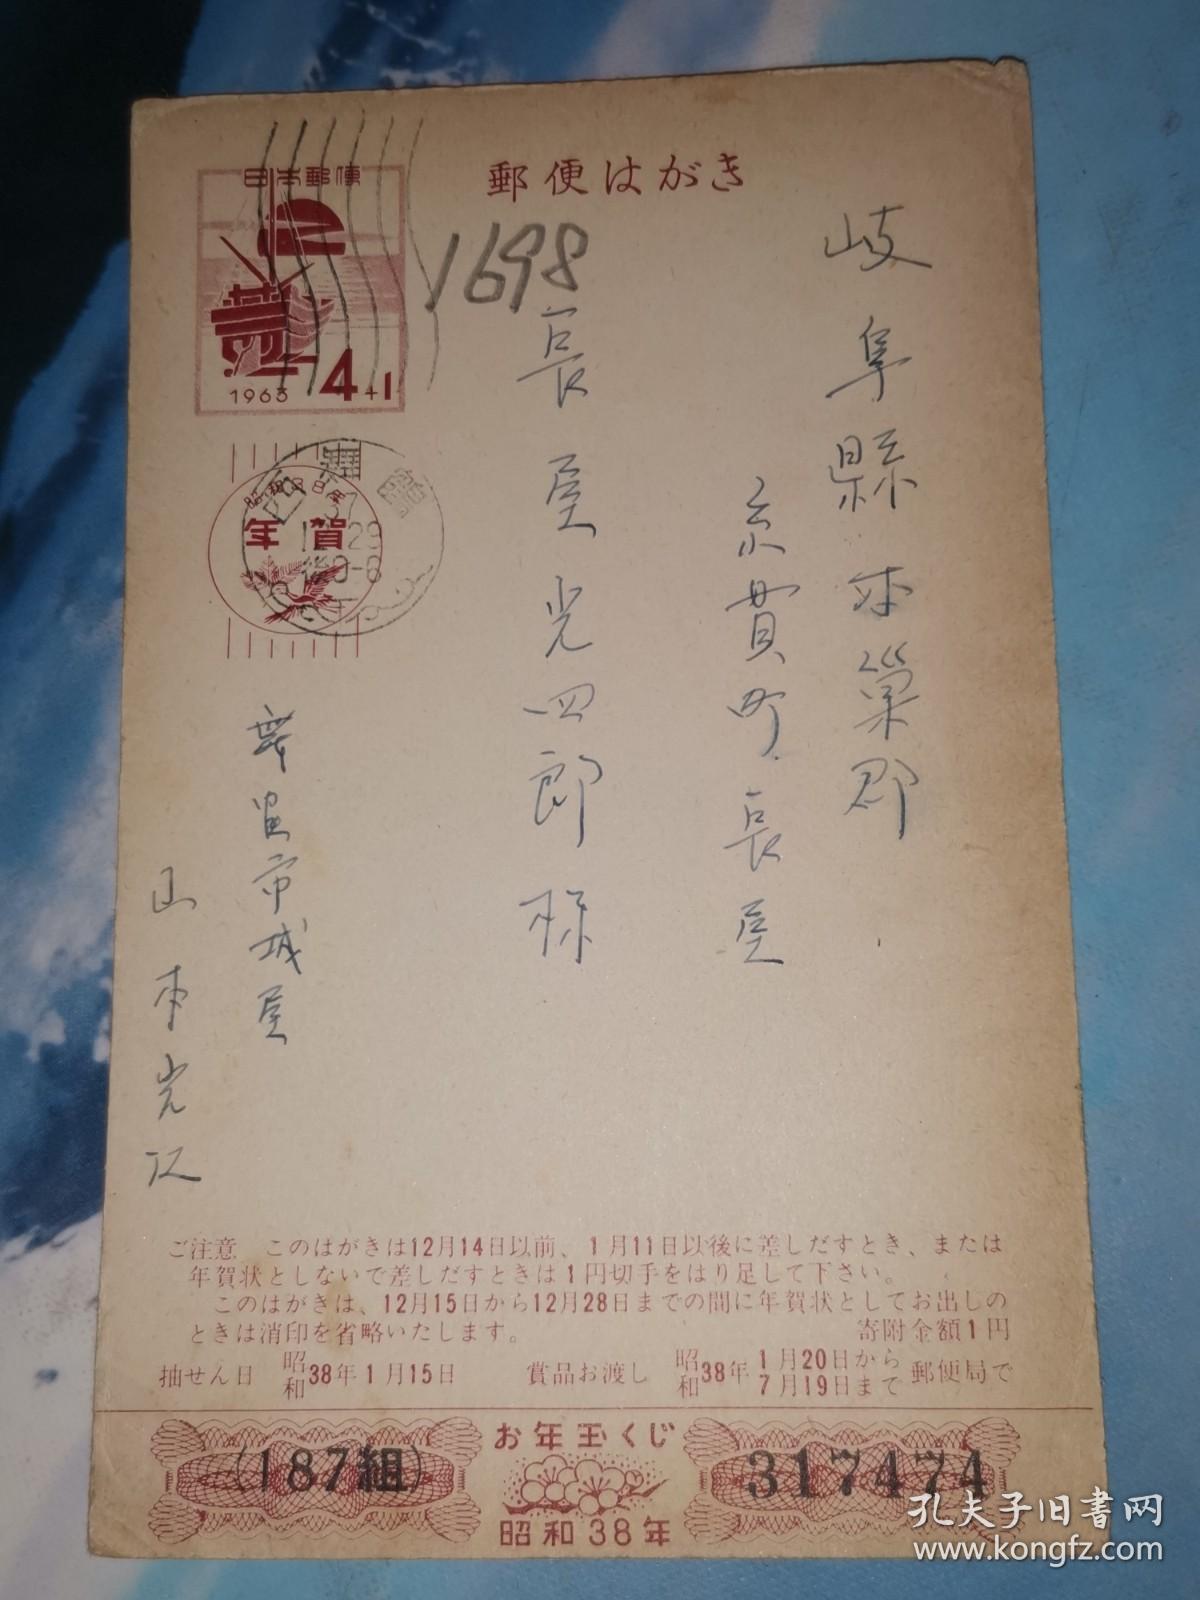 郵便はがき
日本郵便
1963 4+1
1698
岐阜縣本巣郡
糸貫町長屋
長屋光四郎様
昭和38年
年賀
37
山本光
ご注意 このはがきは12月14日以前、1月11日以後に差しだすとき、または
年賀状としないで差しだすときは1円切手をはり足して下さい。
このはがきは、12月15日から12月28日までの間に年賀状としてお出しの
ときは消印を省略いたします。 寄附金額1円
抽せん日 昭和38年1月15日 賞品お渡し 昭和38年 1月20日から 7月19日まで 郵便局で
(187組) お年玉くじ 317474
昭和38年
孔夫子旧书网
www.kongfz.com